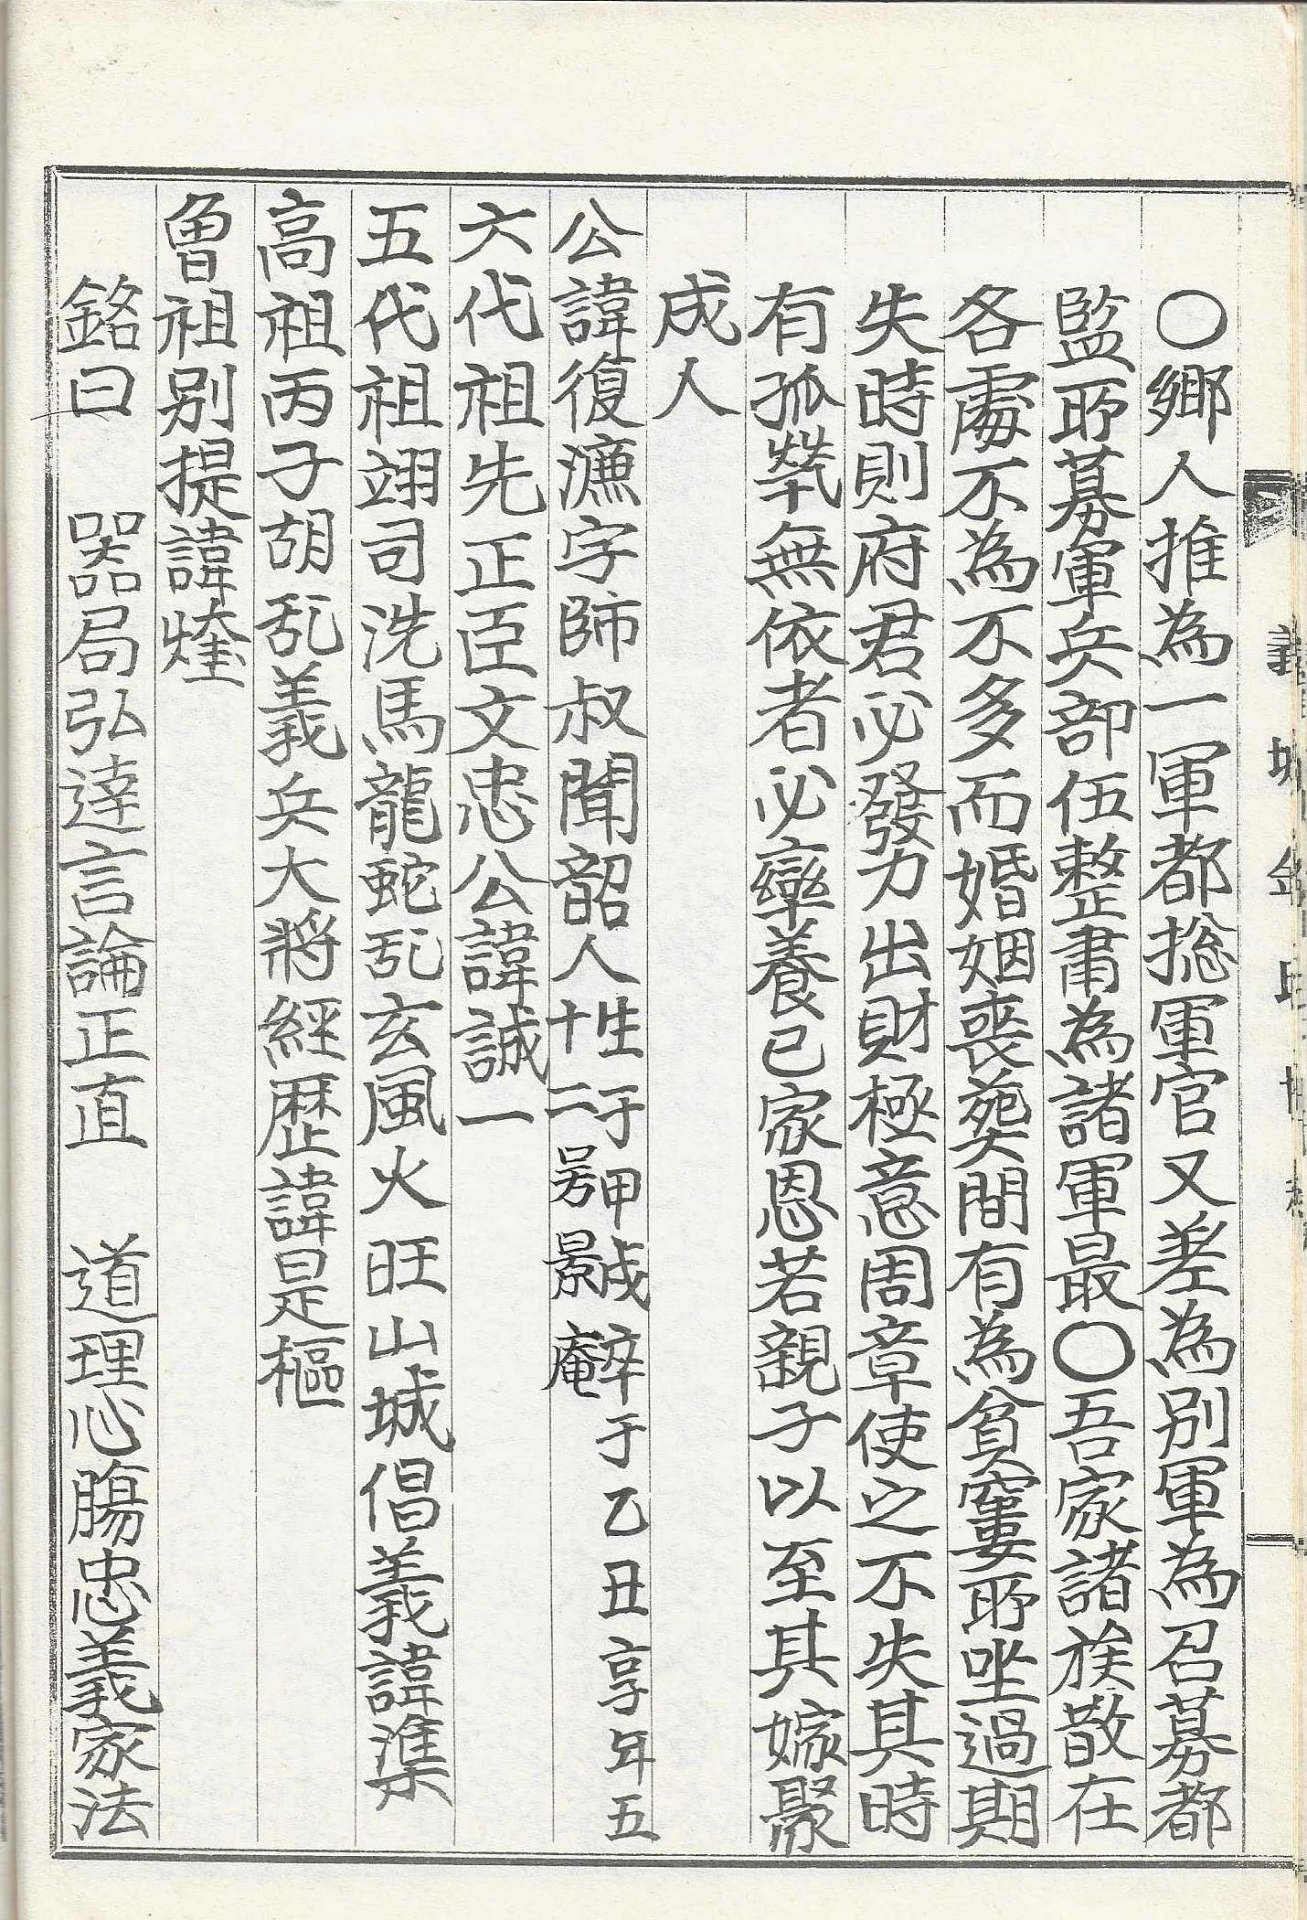 ○鄕人推為一軍都捴軍官又差為別軍為召募都
監所募軍兵部伍整肅為諸軍最○吾家諸族散在
各處不為不多而婚姻喪葬間有為貧窶所坐過期
失時則府君必發力出財極意周章使之不失其時
有孤㷀無依者必孿養已家恩若親子以至其嫁聚
成人
公諱復濂字師叔聞韶人生于甲戌卒于乙丑享年五
十二号景庵
六代祖先正臣文忠公諱誠一
五代祖翊司洗馬龍蛇乱玄風火旺山城倡義諱潗
高祖丙子胡乱義兵大將經歷諱是樞
曾祖別提諱煃
銘曰 器局弘達言論正直 道理心腸忠義家法
義城金氏世